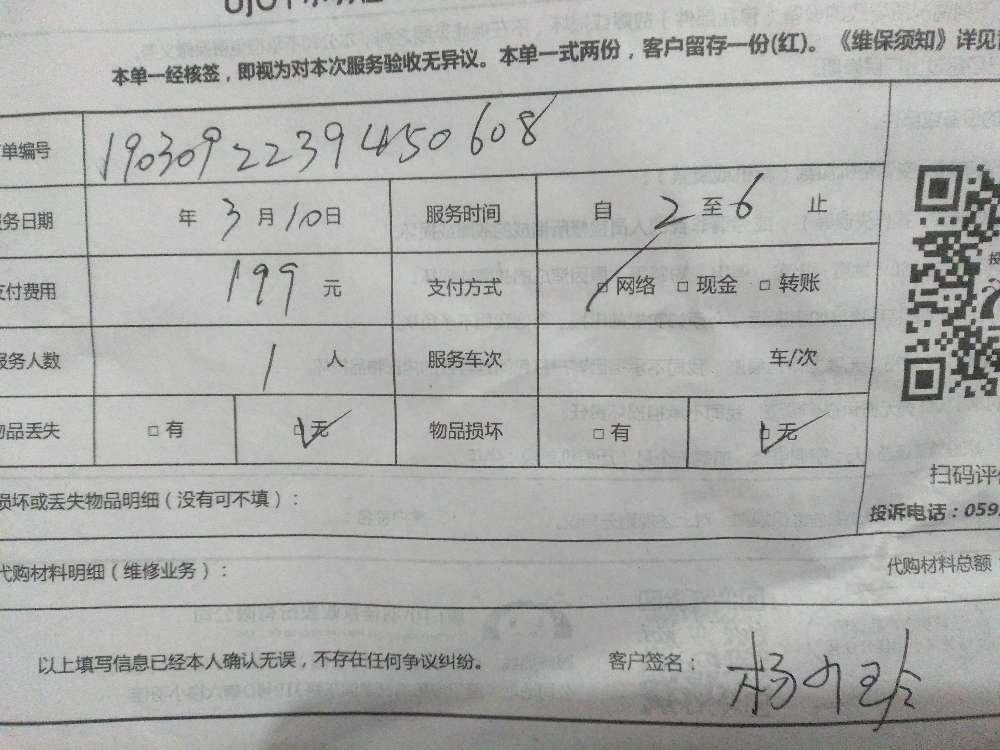 本单一经核签，即视为对本次服务验收无异议。本单一式两份，客户留存一份(红)。《维保须知》详见
单编号 1903092239450608
服务日期 年 3 月 10 日 服务时间 自 2 至 6 止
支付费用 199 元 支付方式 □ 网络 □ 现金 □ 转账
服务人数 1 人 服务车次 车/次
物品丢失 □ 有 □ 无 物品损坏 □ 有 □ 无
损坏或丢失物品明细（没有可不填）：
扫码评
投诉电话：059
代购材料明细（维修业务）：
代购材料总额
以上填写信息已经本人确认无误，不存在任何争议纠纷。 客户签名： 杨